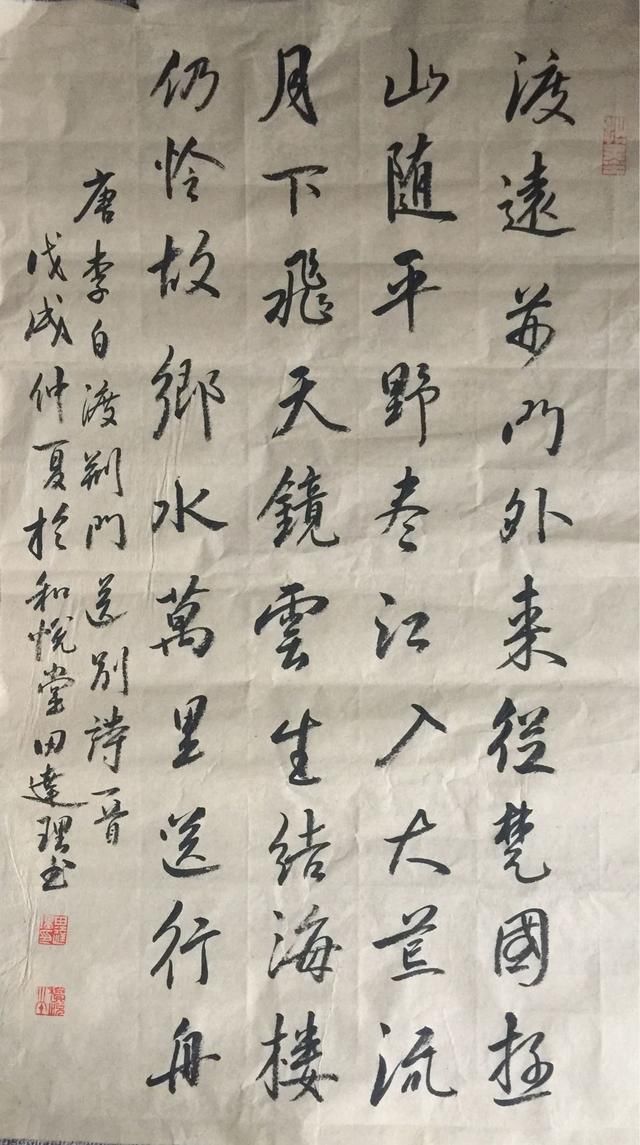 渡遠荊門外来從楚國遊
山随平野尽江入大荒流
月下飛天鏡雲生結海楼
仍怜故鄉水萬里送行舟
唐李白渡荆門送别詩一首
戊戌仲夏於和悦堂田達理书